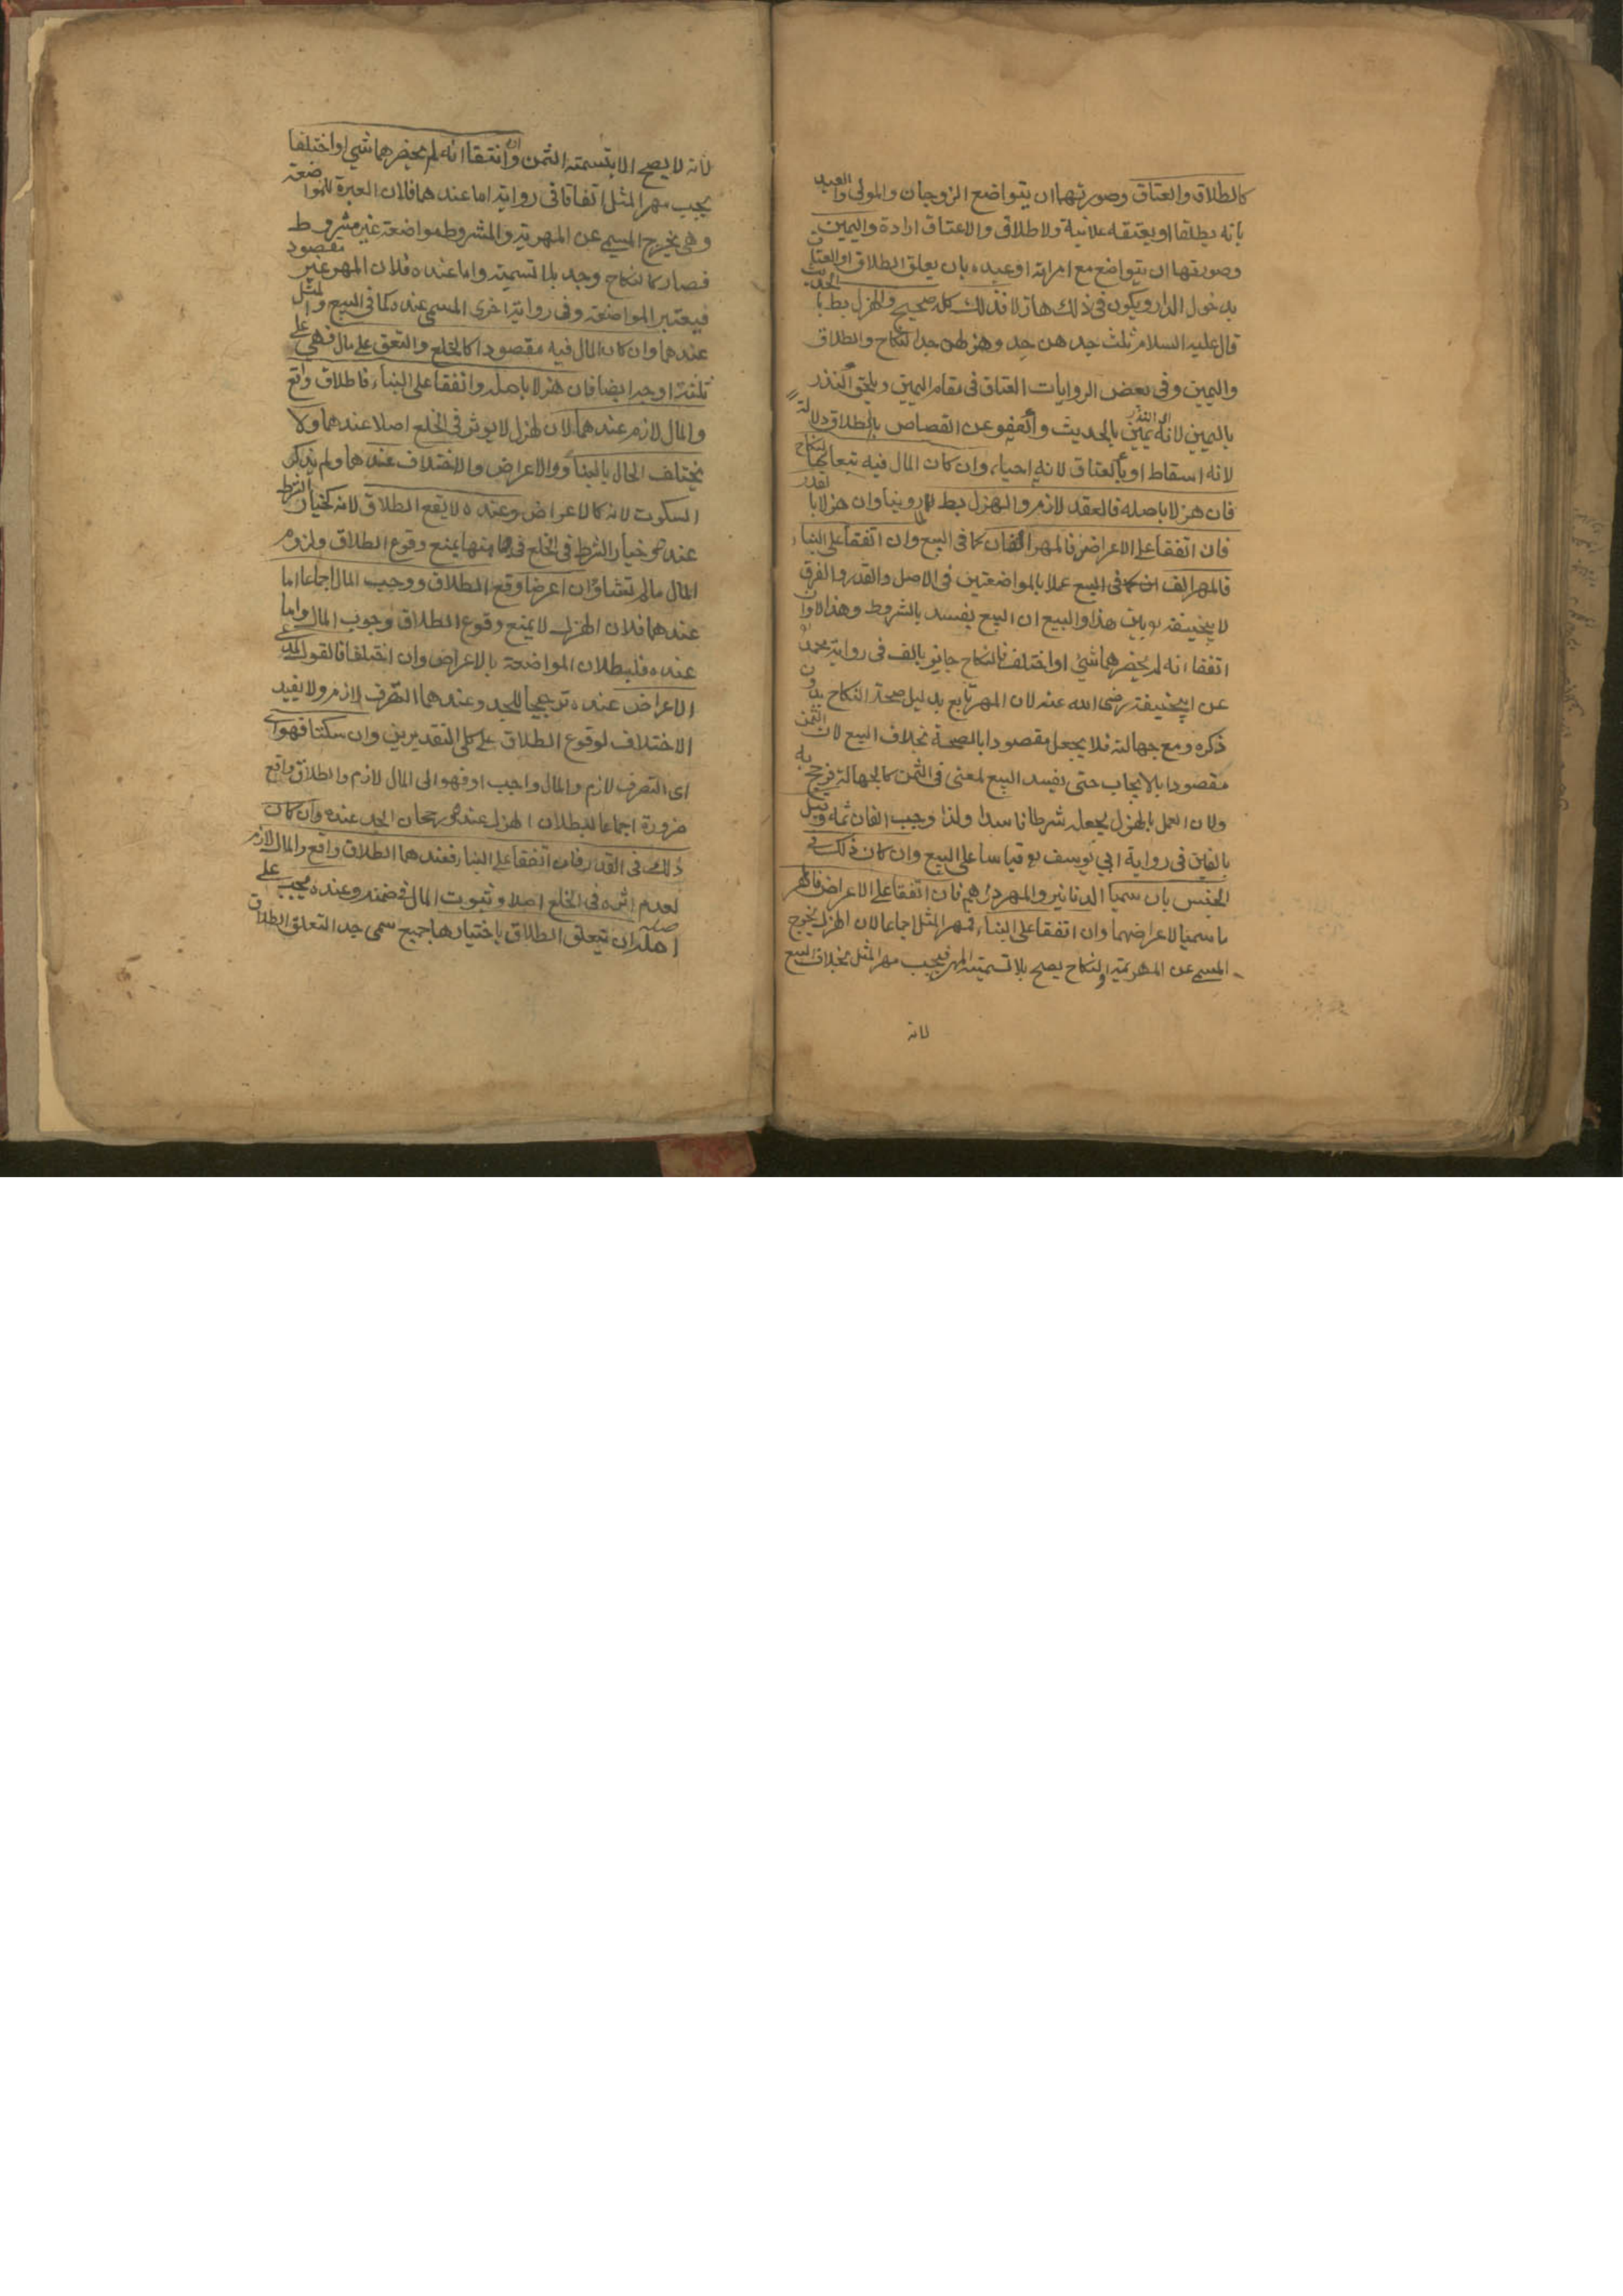 كالطلاق والعتاق وصورتهما ان يتواضع الزوجان والمولى والعبد
بانه يطلقها او يعتقه علانية ولا طلاق ولا اعتاق ارادة واليمين
وصورتها ان يتواضع مع امراته او عبده بان يعلق الطلاق او العتاق
بدخول الدار ويكون في ذلك هازلا فذلك كله صحيح والهزل بط بالحديث
قال عليه السلام ثلث جدهن جد وهزلهن جد النكاح والطلاق
واليمين وفي بعض الروايات العتاق في مقام اليمين ويلحق النذر
باليمين لانه اى النذر يمين بالحديث والعفو عن القصاص بالطلاق دلالة
لانه اسقاط او بالعتاق لانه احياء وان كان المال فيه تبعا كالنكاح
فان هزلا باصله فالعقد لازم والهزل بط لما روينا وان هزلا بالقدر
فان اتفقا على الاعراض فالمهر الفان كما في البيع وان اتفقا على البناء
فالمهر الف في البيع عملا بالمواضعتين في الاصل والقدر والفرق
لابيحنيفة بين هذا والبيع ان البيع يفسد بالشروط وهذا لا وان
اتفقا انه لم يحضرهما شئ او اختلفا فالنكاح جايز بالف في رواية محمد
عن ابيحنيفة رضى الله عنه لان المهر تابع بدليل صحة النكاح بدون
ذكره ومع جهالته فلا يجعل مقصودا بالصحة بخلاف البيع لان الثمن
مقصودا بالايجاب حتى يفسد البيع لمعنى في الثمن كالجهالة فرجح به
ولان العمل بالهزل يجعله شرطا فاسدا ولذا وجب الفان ثمه وقيل
بالفين في رواية ابي يوسف قياسا على البيع وان كان ذلك في
الجنس بان سميا الدنانير والمهر دراهم فان اتفقا على الاعراض فالمهر
ما سميا لاعراضهما وان اتفقا على البناء فمهر المثل اجماعا لان الهزل يخرج
المسمى عن المهرية والنكاح يصح بلا تسمية المهر فيجب مهر المثل بخلاف البيع
لانه
لانه لا يصح الا بتسمية الثمن وان اتفقا انه لم يحضرهما شئ او اختلفا
يجب مهر المثل اتفاقا في رواية اما عندهما فلان العبرة للمواضعة
وهي يخرج المسمى عن المهرية والمشروط مواضعة غير مشروط
فصار كالنكاح وجد بلا تسمية واما عنده فلان المهر غير مقصود
فيعتبر المواضعة وفي رواية اخرى المسمى عنده كما في البيع والمثل
عندهما وان كان المال فيه مقصودا كالخلع والعتق على مال فهي على
ثلثة اوجه ايضا فان هزلا باصله واتفقا على البناء فاطلاق واقع
والمال لازم عندهما لان الهزل لا يوثر في الخلع اصلا عندهما ولا
يختلف الحال بالبناء والاعراض والاختلاف عندهما ولم يذكر
السكوت لانه كالاعراض وعنده لا يقع الطلاق لانه كخيار الشرط
عنده وخيار الشرط في الخلع في منها يمنع وقوع الطلاق ولزوم
المال مالم تشاؤان اعرضا وقع الطلاق ووجب المال اجماعا اما
عندهما فلان الهزل لا يمنع وقوع الطلاق وجوب المال واما
عنده فلبطلان المواضعة بالاعراض وان اختلفا فالقول لمدعى
الاعراض عنده ترجيحا للجد وعندهما التصرف لازم ولا يفيد
الاختلاف لوقوع الطلاق على كلى التقديرين وان سكتا فهو
اى التصرف لازم والمال واجب او فهو الى المال لازم والطلاق واقع
ضرورة اجماعا لبطلان الهزل عندهما ورجحان الجد عنده وان كان
ذلك في القدر فان اتفقا على البناء فعندهما الطلاق واقع والمال لازم
لعدم اثره في الخلع اصلا وثبوت المال في ضمنه وعنده يجب على
اصله ان يتعلق الطلاق باختيارها جميع سمى جدا لتعلق الطلاق